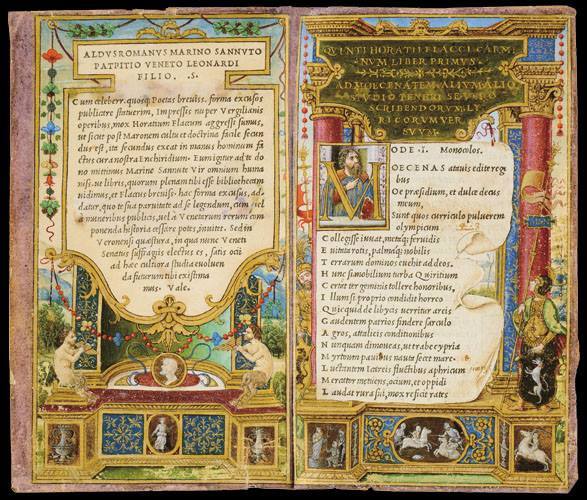 ALDVS ROMANVS MARINO SANNVTO
PATPITIO VENETO LEONARDI
FILIO. .S.
Cum celeberr. quosq; Poetas breuiss. forma excusos
publicare statuerim, Impressis nuper Vergilianis
operibus, mox Horatium Flaccum aggressi sumus,
ut sicut post Maronem cultu et doctrina facile secun
dus est, ita secundus exeat in manus hominum fa
ctus cura nostra Enchiridion. Eum igitur ad te do
no mittimus Marine Sannute Vir omnium huma
niss. ut libris, quorum plenam tibi esse bibliothecam
uidimus, et Flaccus breuiss. hac forma excusus, ad-
datur, quo te sua paruitate ad se legendum, cum uel
a muneribus publicis, uel à Venetarum rerum com
ponenda historia cessare potes, inuitet. Sed in
Veronensi quæstura, in qua nunc Veneti
Senatus suffragiis electus es, satis ocii
ad hæc cultiora studia euoluen
da futurum tibi existima
mus. Vale.
QVINTI HORATII FLACCI CARMI
NVM LIBER PRIMVS.
AD MOECENATEM ALIVM ALIO
STVDIO TENERI, SE VERO
SCRIBENDORVM LY
RICORVM VER
SVVM.
ODE .I. Monocolos.
MOECENAS atauis edite regi
bus
O et præsidium, et dulce decus
meum,
Sunt quos curriculo puluerem
olympicum
Collegisse iuuat, metaq; feruidis
Euitata rotis, palmaq; nobilis
Terrarum dominos euehit ad deos.
Hunc si mobilium turba Quiritium
Certat tergeminis tollere honoribus,
Illum si proprio condidit horreo
Quicquid de libycis uerritur areis
Gaudentem patrios findere sarculo
Agros, attalicis conditionibus
Nunquam dimoueas, ut trabe cypria
Myrtoum pauidus nauta secet mare.
Luctantem Icariis fluctibus aphricum
Mercator metuens, ocium, et oppidi
Laudat rura sui, mox reficit rates